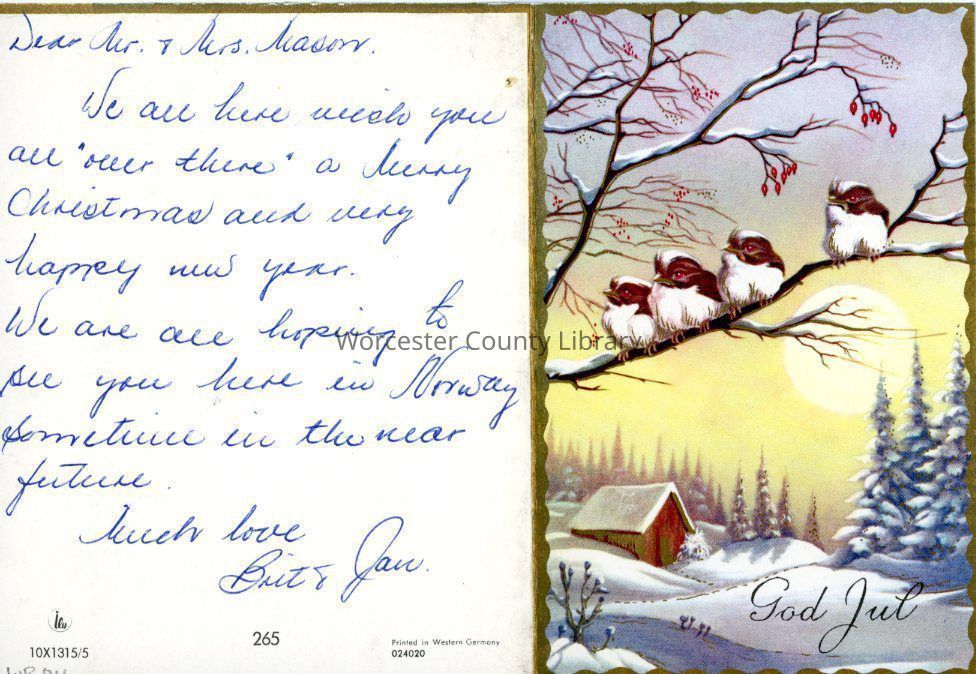 Dear Mr. & Mrs. Mason.
We all here wish you
all "over there" a Merry
Christmas and very
happy new year.
We are all hoping to
see you here in Norway
sometime in the near
future.
Much love
Brit & Jan.
10X1315/5
265
Printed in Western Germany
024020
Worcester County Library
God Jul